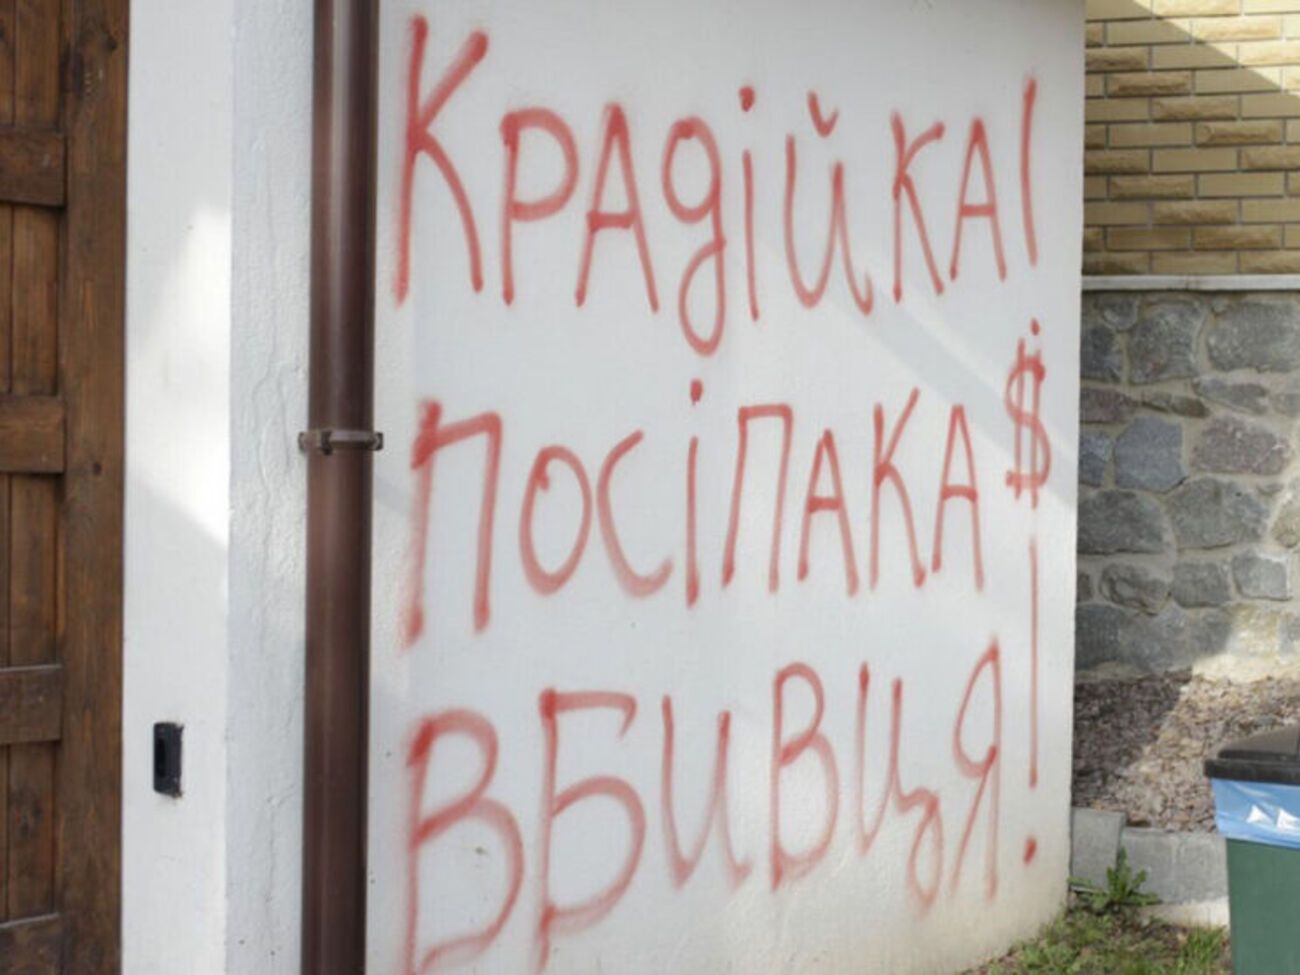 Крадійка!
посіпака $
вбивця!